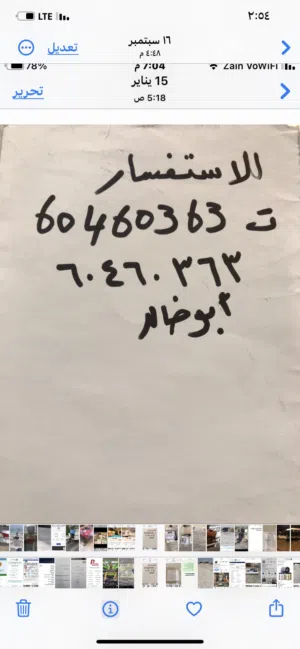 ٢:٥٤ LTE
١٦ سبتمبر
٤:٤٨ م
تعديل
Zain VoWiFi 7:04 م 78%
15 يناير
5:18 ص
تحرير
للاستفسار
ت 60460363
٦٠٤٦٠٣٦٣
أبو خالد